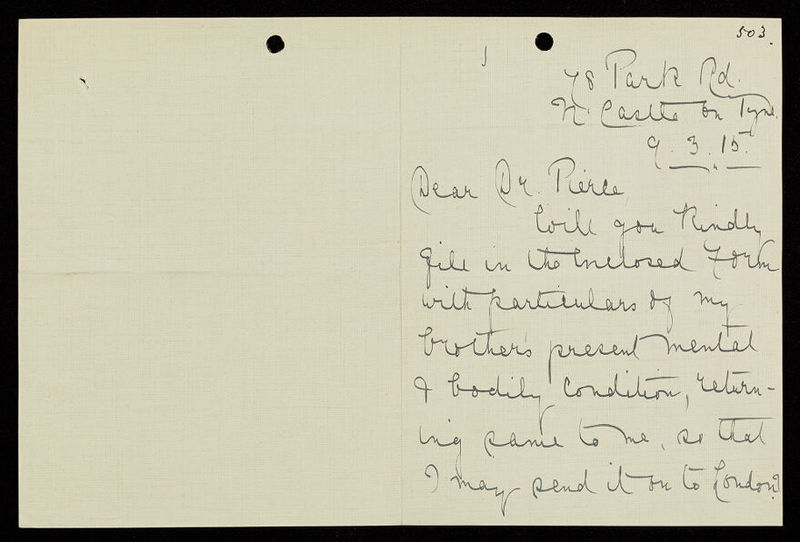 503.
78 Park Rd.
N. Castle on Tyne.
9.3.15.
Dear Dr. Pierce,
Will you kindly
fill in the enclosed Form
with particulars of my
brothers present mental
& bodily condition, return-
ing same to me, so that
I may send it on to London?